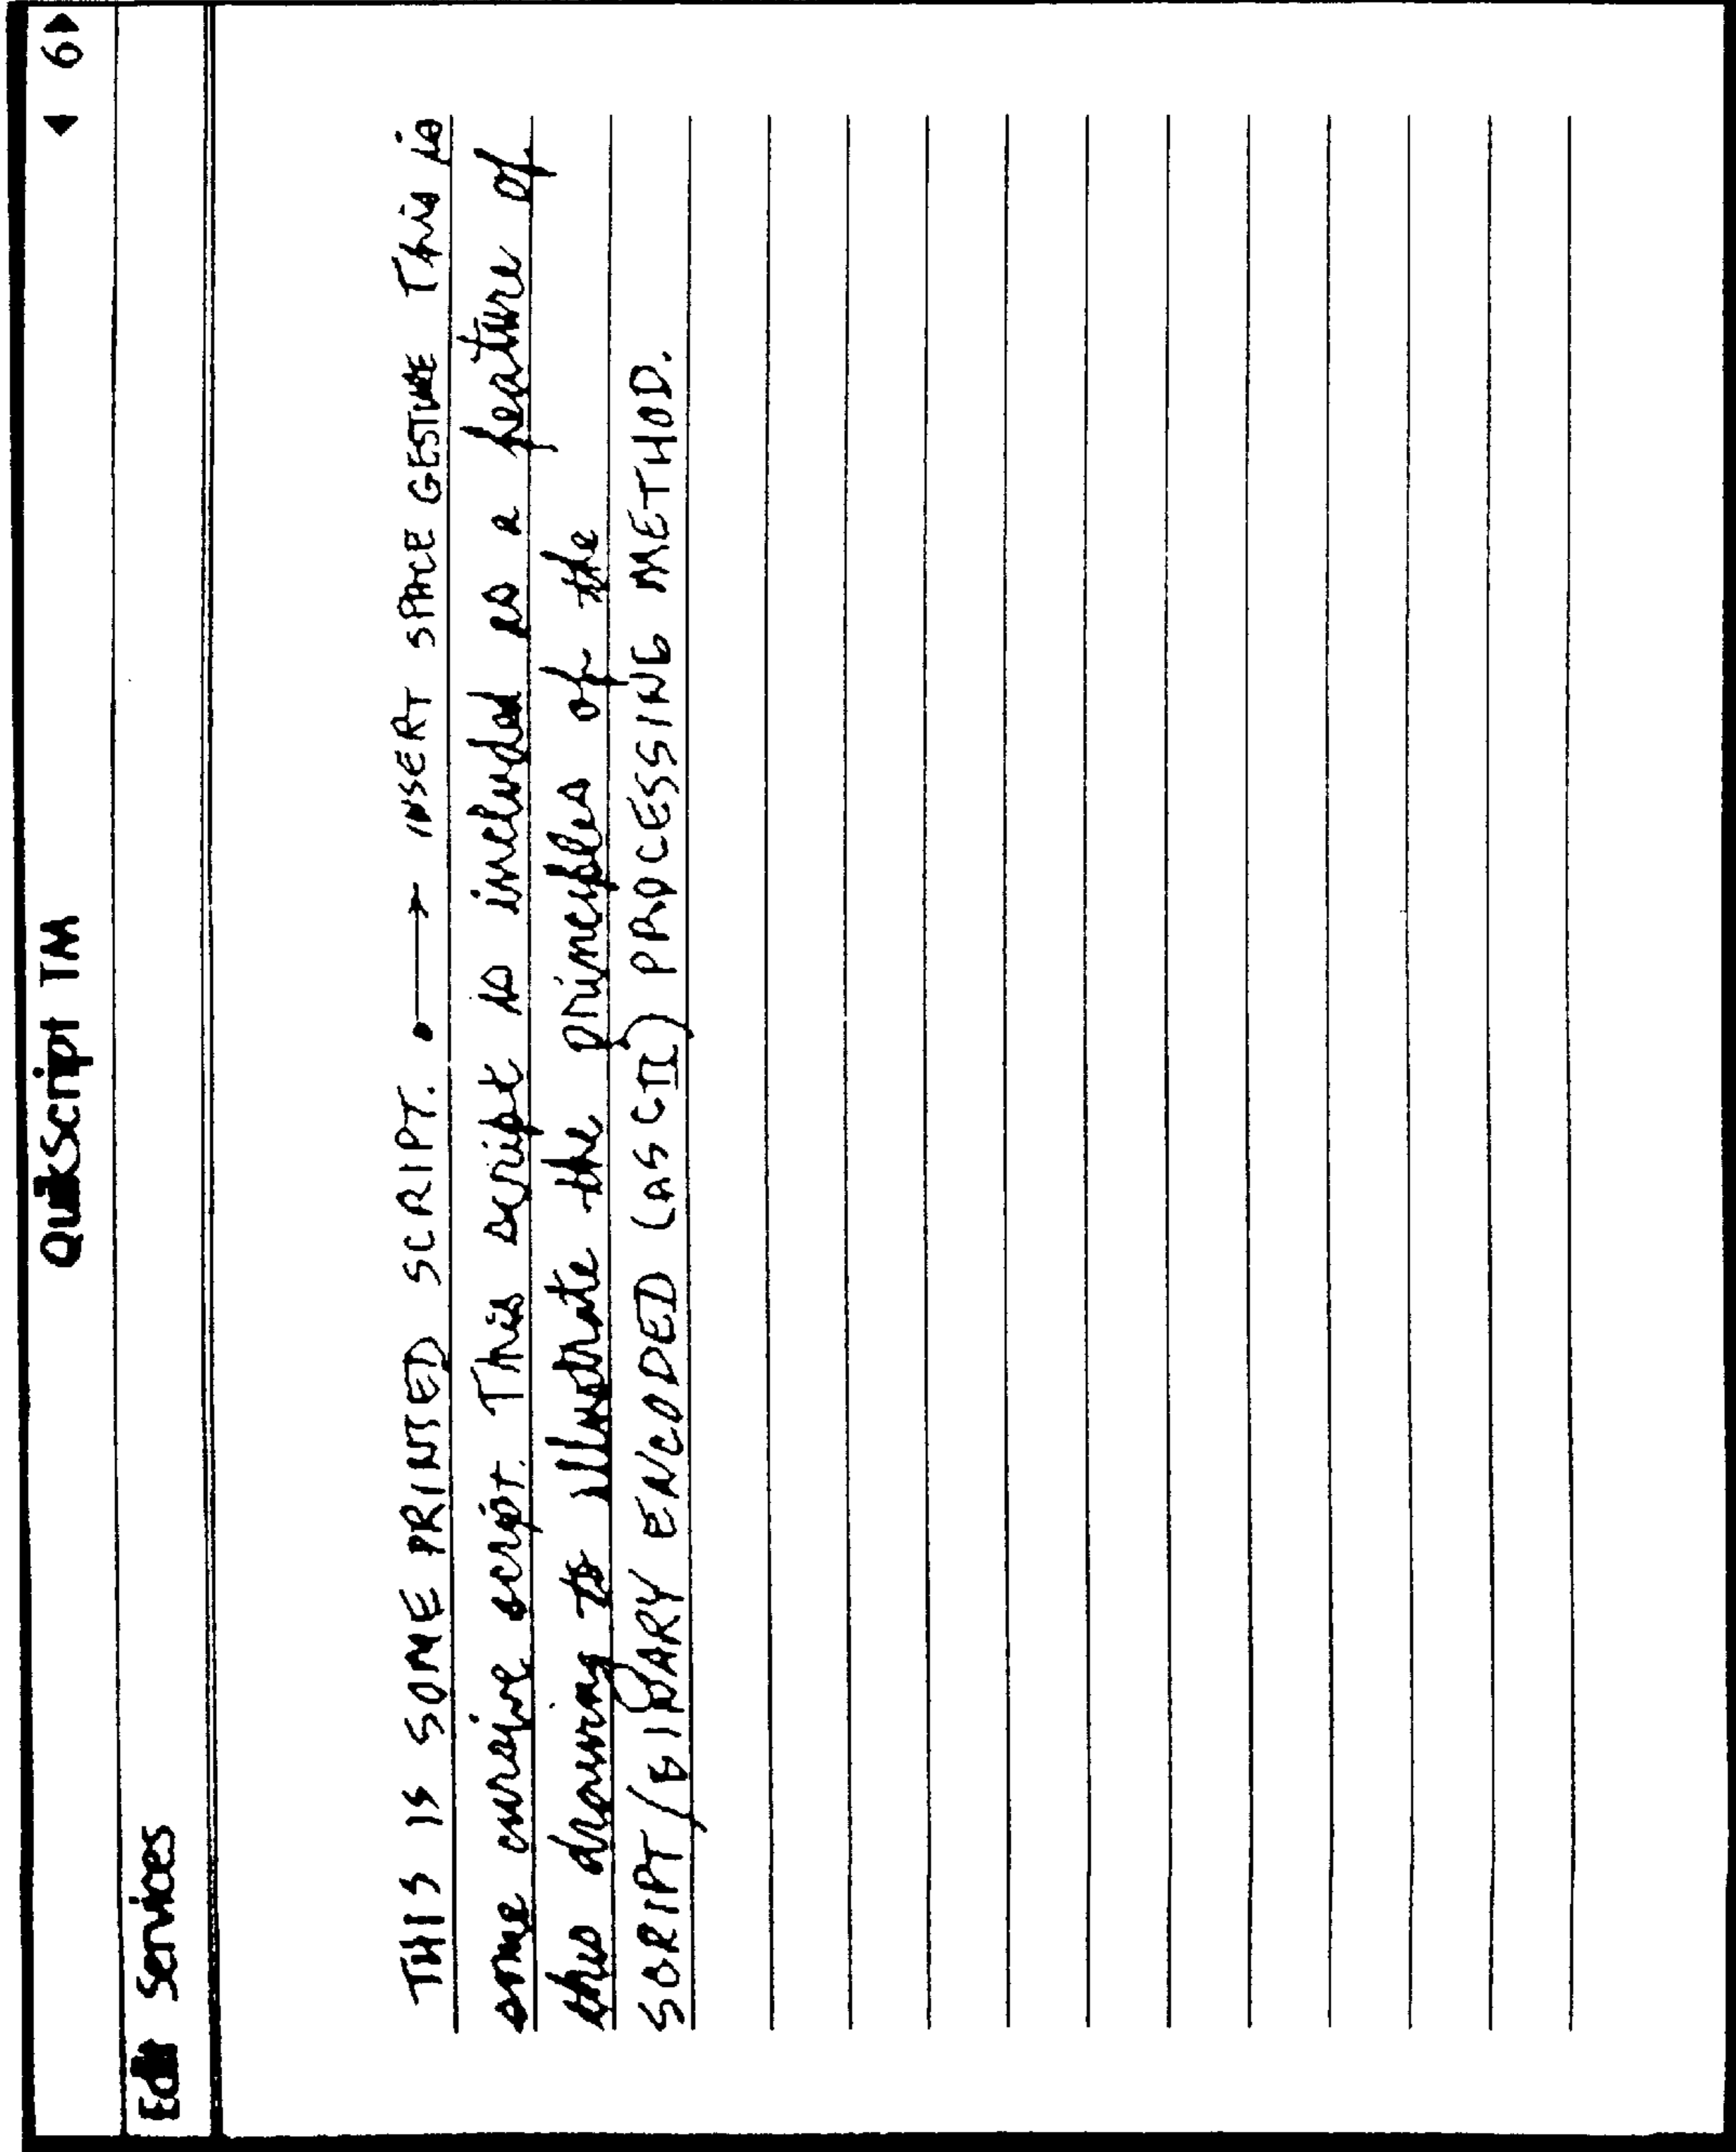 QuikScript TM ◀ 6▶
Edit Services
THIS IS SOME PRINTED SCRIPT. •—→ INSERT SPACE GESTURE This is
some cursive script. This script is included as a feature of
this drawing to illustrate the principles of the
SCRIPT/BINARY ENCODED (ASCII) PROCESSING METHOD.